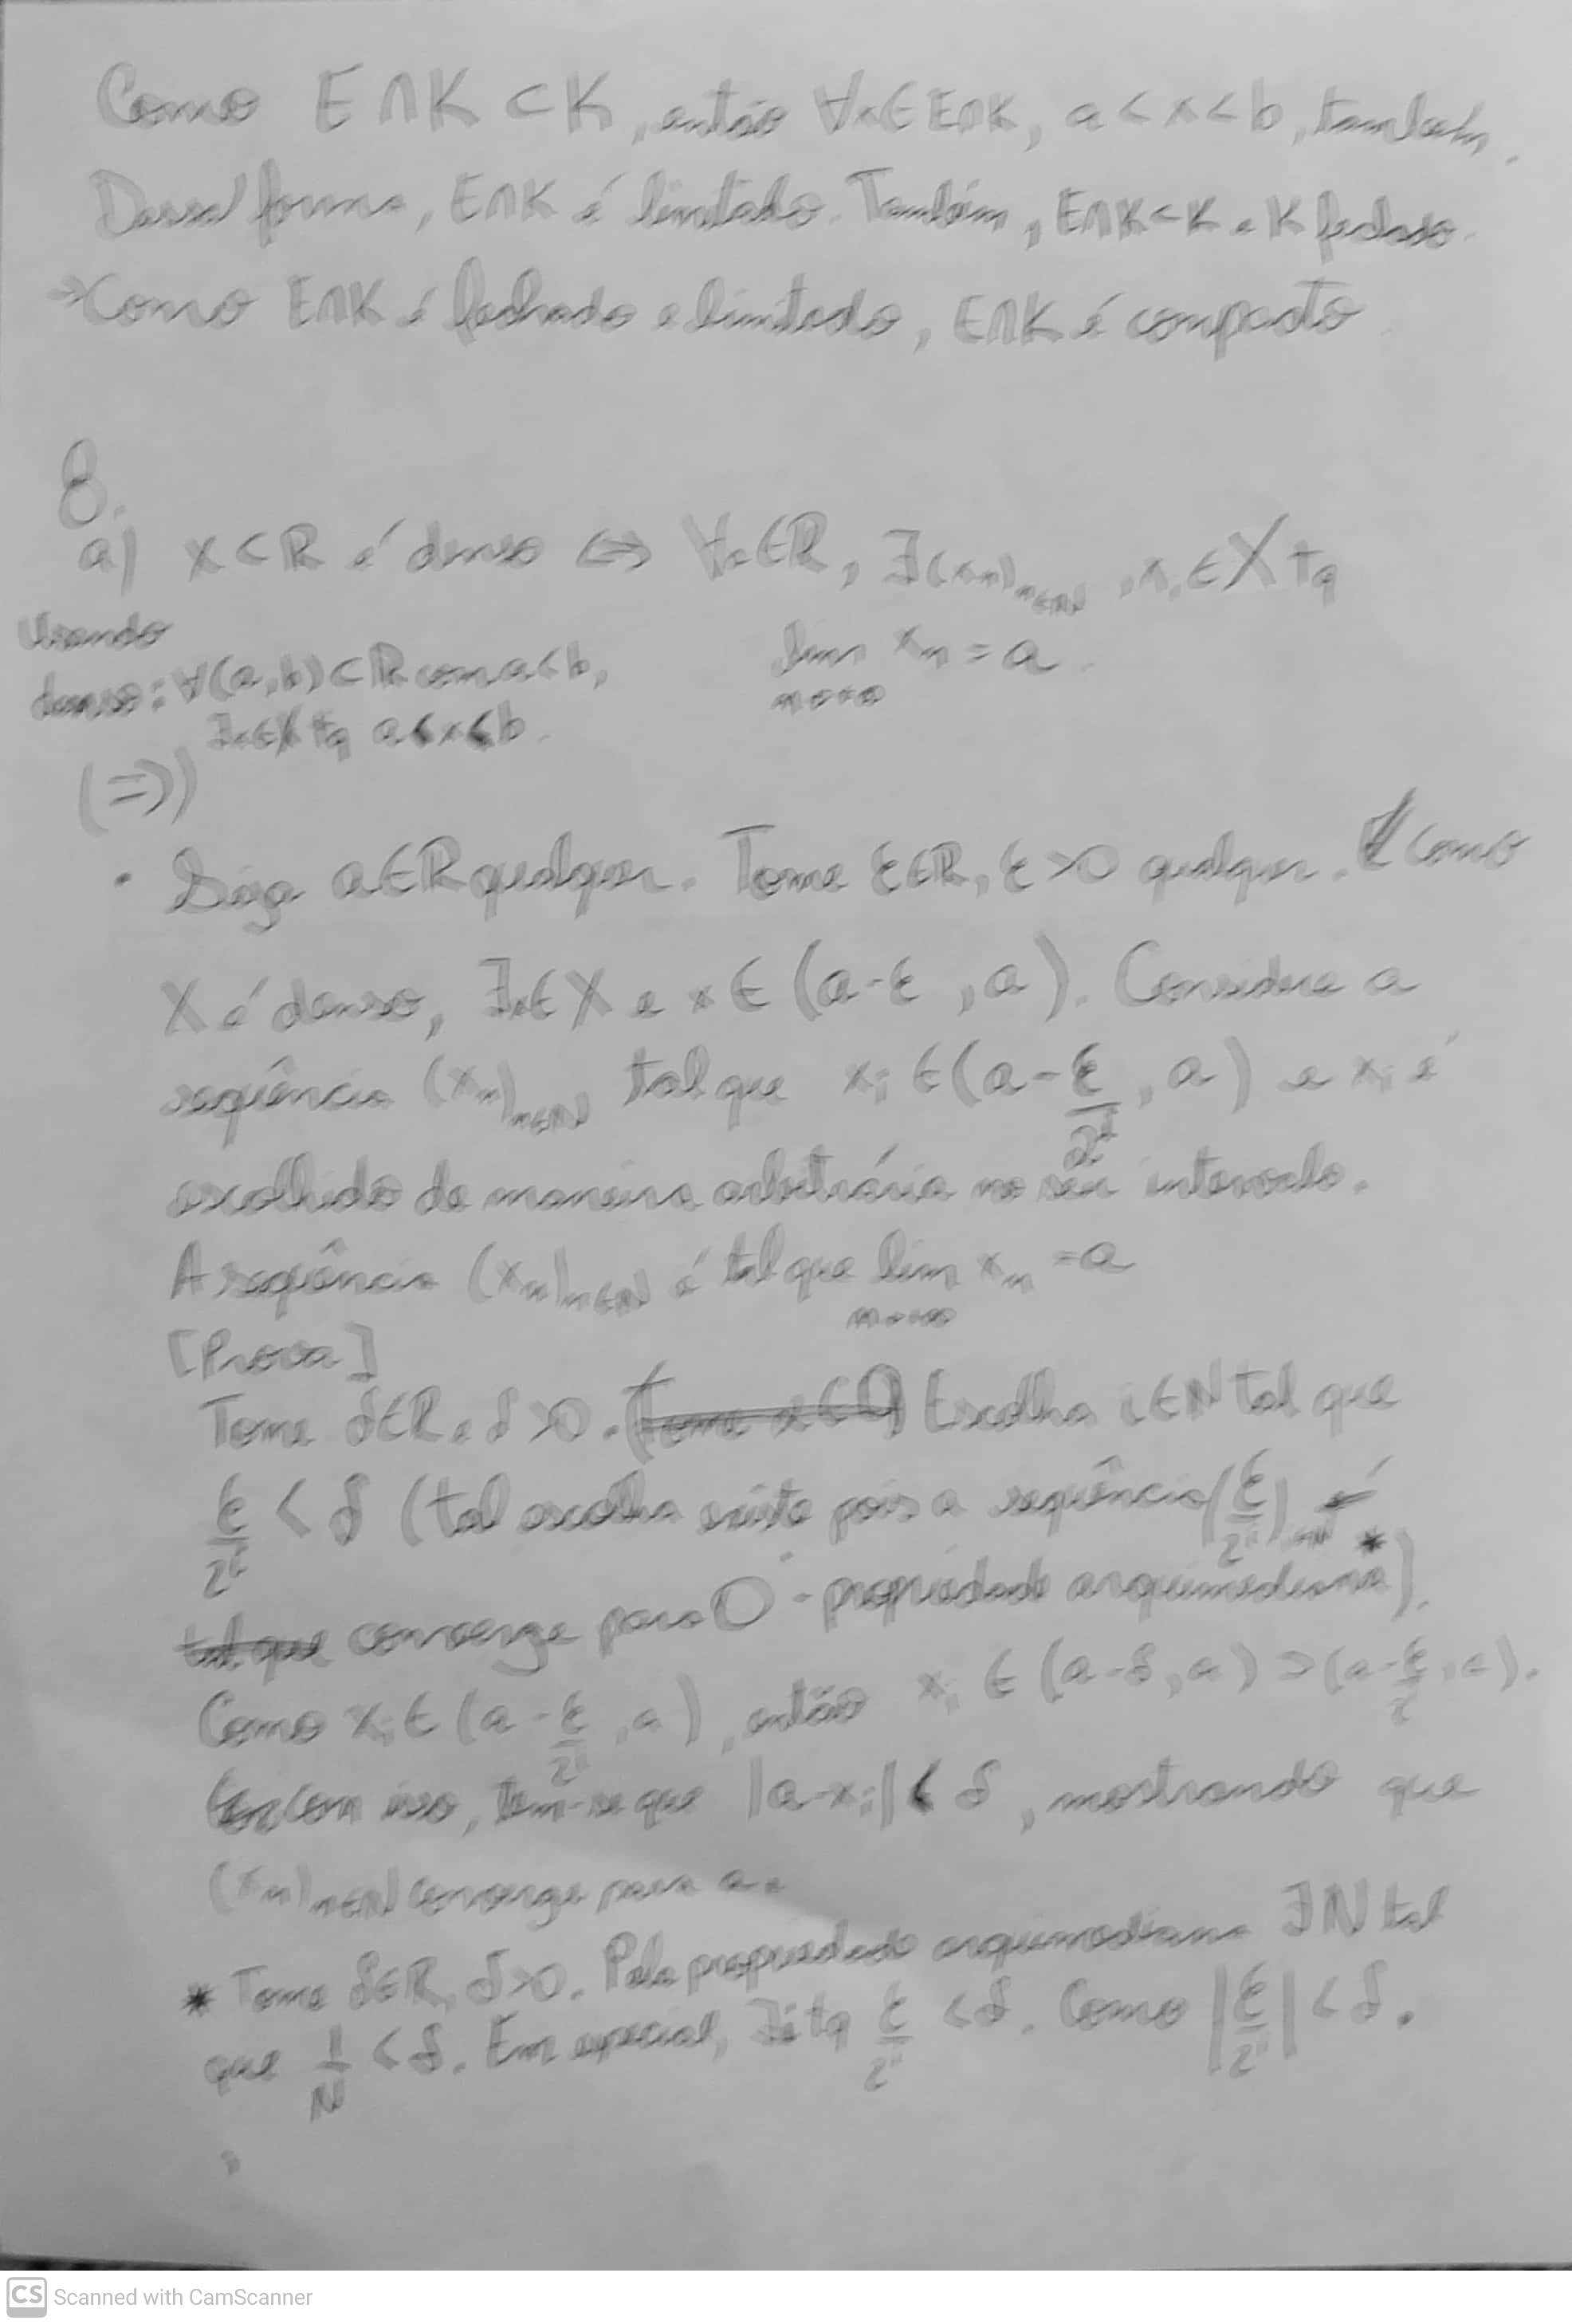 Como E∩K ⊂ K, então ∀x∈E∩K, a < x < b, também.
Dessa forma, E∩K é limitado. Também, E∩K⊂K e K fechado.
⇒ Como E∩K é fechado e limitado, E∩K é compacto
8.
a) X⊂ℝ é denso ⇔ ∀a∈ℝ, ∃(xₙ)ₙ∈ℕ, xᵢ∈X tq
lim xₙ = a
n→∞
Usando
denso: ∀(a,b)⊂ℝ com a<b,
∃x∈X tq a<x<b.
(⇒)
• Seja a∈ℝ qualquer. Tome ε∈ℝ, ε>0 qualquer. Como
X é denso, ∃x∈X e x∈(a-ε, a). Considere a
sequência (xₙ)ₙ∈ℕ tal que xᵢ∈(a-ε/2ⁱ, a) e xᵢ é
escolhido de maneira arbitrária no seu intervalo.
A sequência (xₙ)ₙ∈ℕ é tal que lim xₙ = a
n→∞
[Prova]
Tome δ∈ℝ, δ>0. Escolha i∈ℕ tal que
ε/2ⁱ < δ (tal escolha existe pois a sequência (ε/2ⁱ)
converge para 0 - propriedade arquimediana*).
Como xᵢ∈(a-ε/2ⁱ, a), então xᵢ∈(a-δ, a)⊃(a-ε/2ⁱ, a).
com isso, tem-se que |a-xᵢ|<δ, mostrando que
(xₙ)ₙ∈ℕ converge para a.
* Tome δ∈ℝ, δ>0. Pela propriedade arquimediana ∃N tal
que 1/N < δ. Em especial, ∃i tq ε/2ⁱ < δ. Como |ε/2ⁱ| < δ.
CS Scanned with CamScanner